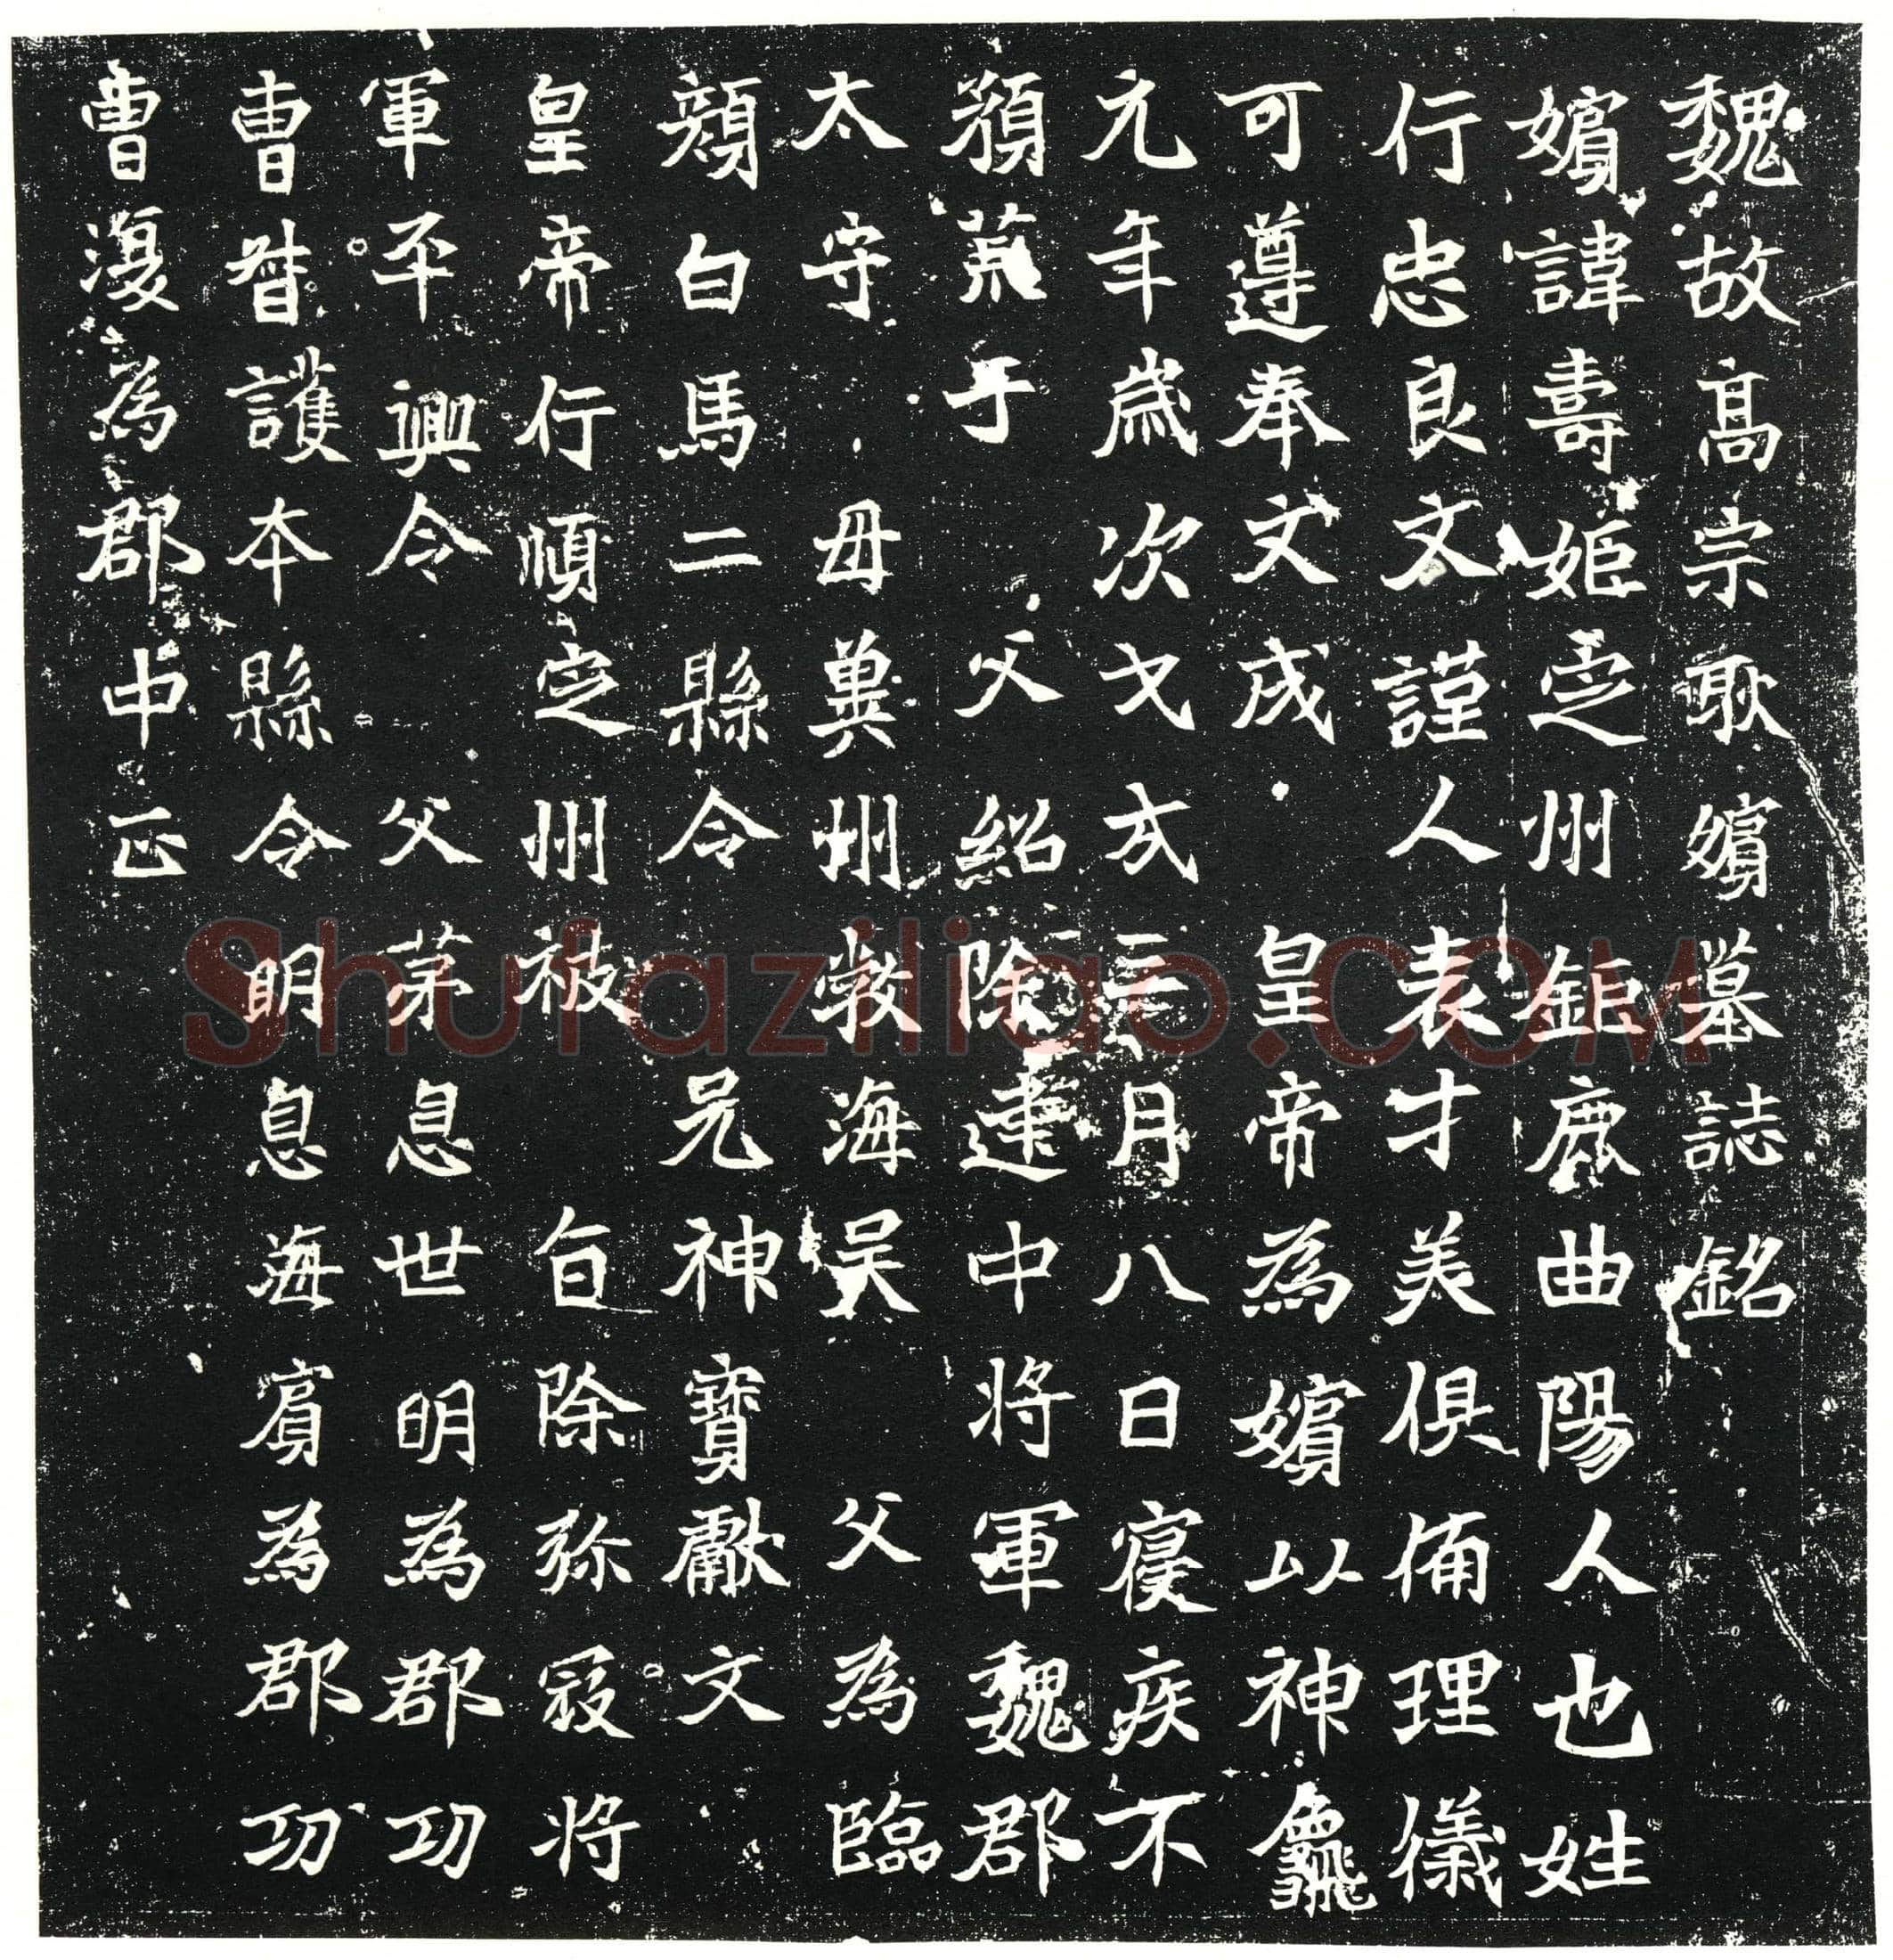 魏故高宗耿嬪墓誌銘
嬪諱壽姬定州鉅鹿曲陽人也姓
行忠良文謹人表才美俱備理儀
可遵奉文成皇帝為嬪以神龜
元年歲次戊戌三月八日寢疾不
豫薨于父紹除建中將軍魏郡
太守母冀州敦海吳父為臨
頓白馬二縣令兄神寶獻文
皇帝行順定州被旨除弥寇將
軍平興令父茅息世明為郡功
曹昔護本縣令明息海賓為郡功
曹復為郡中正
Shufaziliao.COM